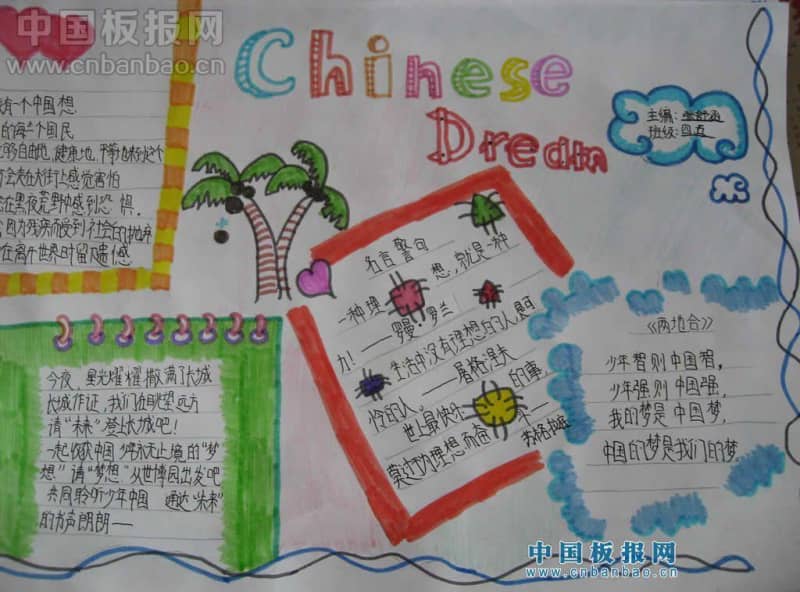 中国板报网
www.cnbanbao.cn
Chinese
Dream
主编:
班级:四五
有一个中国想
的每个国民
自由地,健康地,平等地
会走在大街上感觉害怕
在黑夜荒野中感到恐惧.
因为残疾而受到社会的
在离开世界时留遗憾
名言警句
一种理想,就是一种
力!——罗曼·罗兰
生活中没有理想的人,是可
怜的人。——屠格涅夫
世上最快乐的事,
莫过于为理想而奋——苏格拉底
《两地合》
少年智则中国智,
少年强则中国强,
我的梦是中国梦,
中国的梦是我们的梦
今夜,星光耀耀撒满了长城
长城作证,我们在眺望远方
请“未来”登上长城吧!
一起收获中国少年永无止境的“梦
想”请“梦想”从世博园出发吧
共同聆听少年中国 通达“未来”
的书声朗朗——
中国板报网
www.cnbanbao.cn